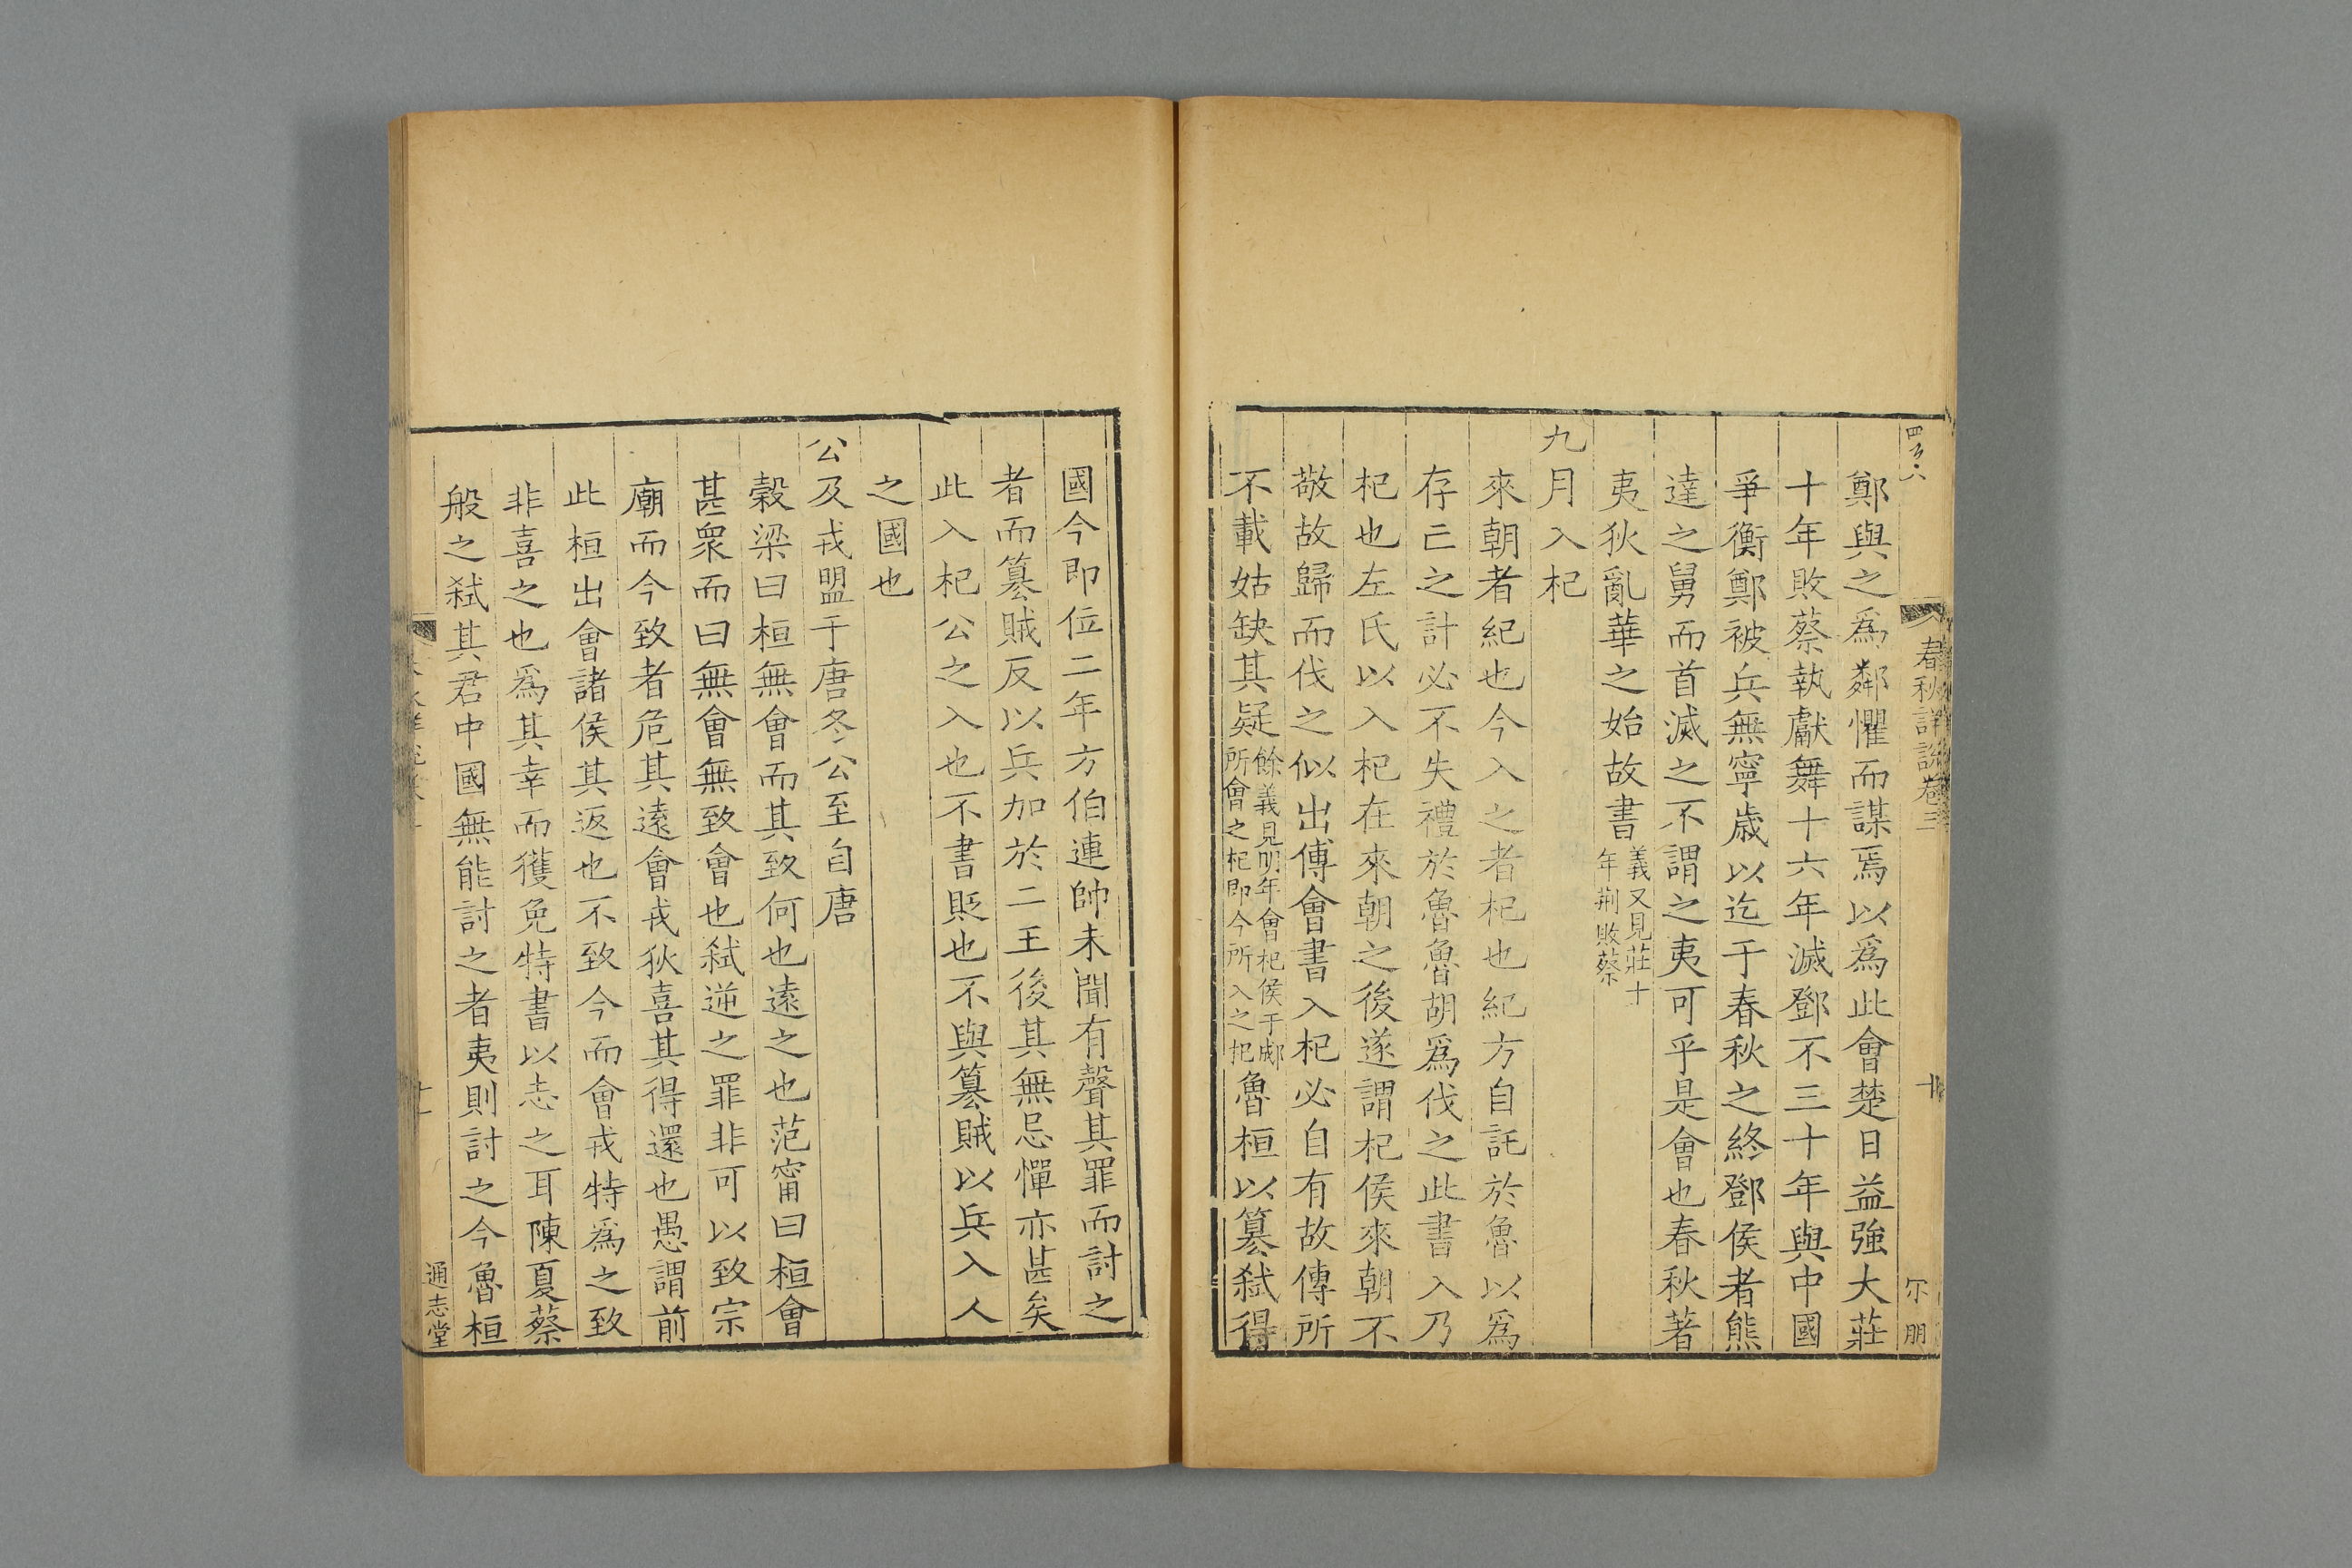 春秋詳說卷三
鄭與之爲鄰懼而謀焉以爲此會楚日益強大莊
十年敗蔡執獻舞十六年滅鄧不三十年與中國
爭衡鄭被兵無寧歲以迄于春秋之終鄧侯者熊
達之舅而首滅之不謂之夷可乎是會也春秋著
夷狄亂華之始故書義又見莊十年荆敗蔡
九月入杞
來朝者紀也今入之者杞也紀方自託於魯以爲
存亡之計必不失禮於魯魯胡爲伐之此書入乃
杞也左氏以入杞在來朝之後遂謂杞侯來朝不
敬故歸而伐之似出傅會書入杞必自有故傳所
不載姑缺其疑餘義見明年會杞侯于郕所會之杞即今所入之杞魯桓以簒弑得
國今即位二年方伯連帥未聞有聲其罪而討之
者而簒賊反以兵加於二王後其無忌憚亦甚矣
此入杞公之入也不書貶也不與簒賊以兵入人
之國也
公及戎盟于唐冬公至自唐
榖梁曰桓無會而其致何也遠之也范甯曰桓會
甚衆而曰無會無致會也弑逆之罪非可以致宗
廟而今致者危其遠會戎狄喜其得還也愚謂前
此桓出會諸侯其返也不致今而會戎特爲之致
非喜之也爲其幸而獲免特書以志之耳陳夏蔡
般之弑其君中國無能討之者夷則討之今魯桓
通志堂